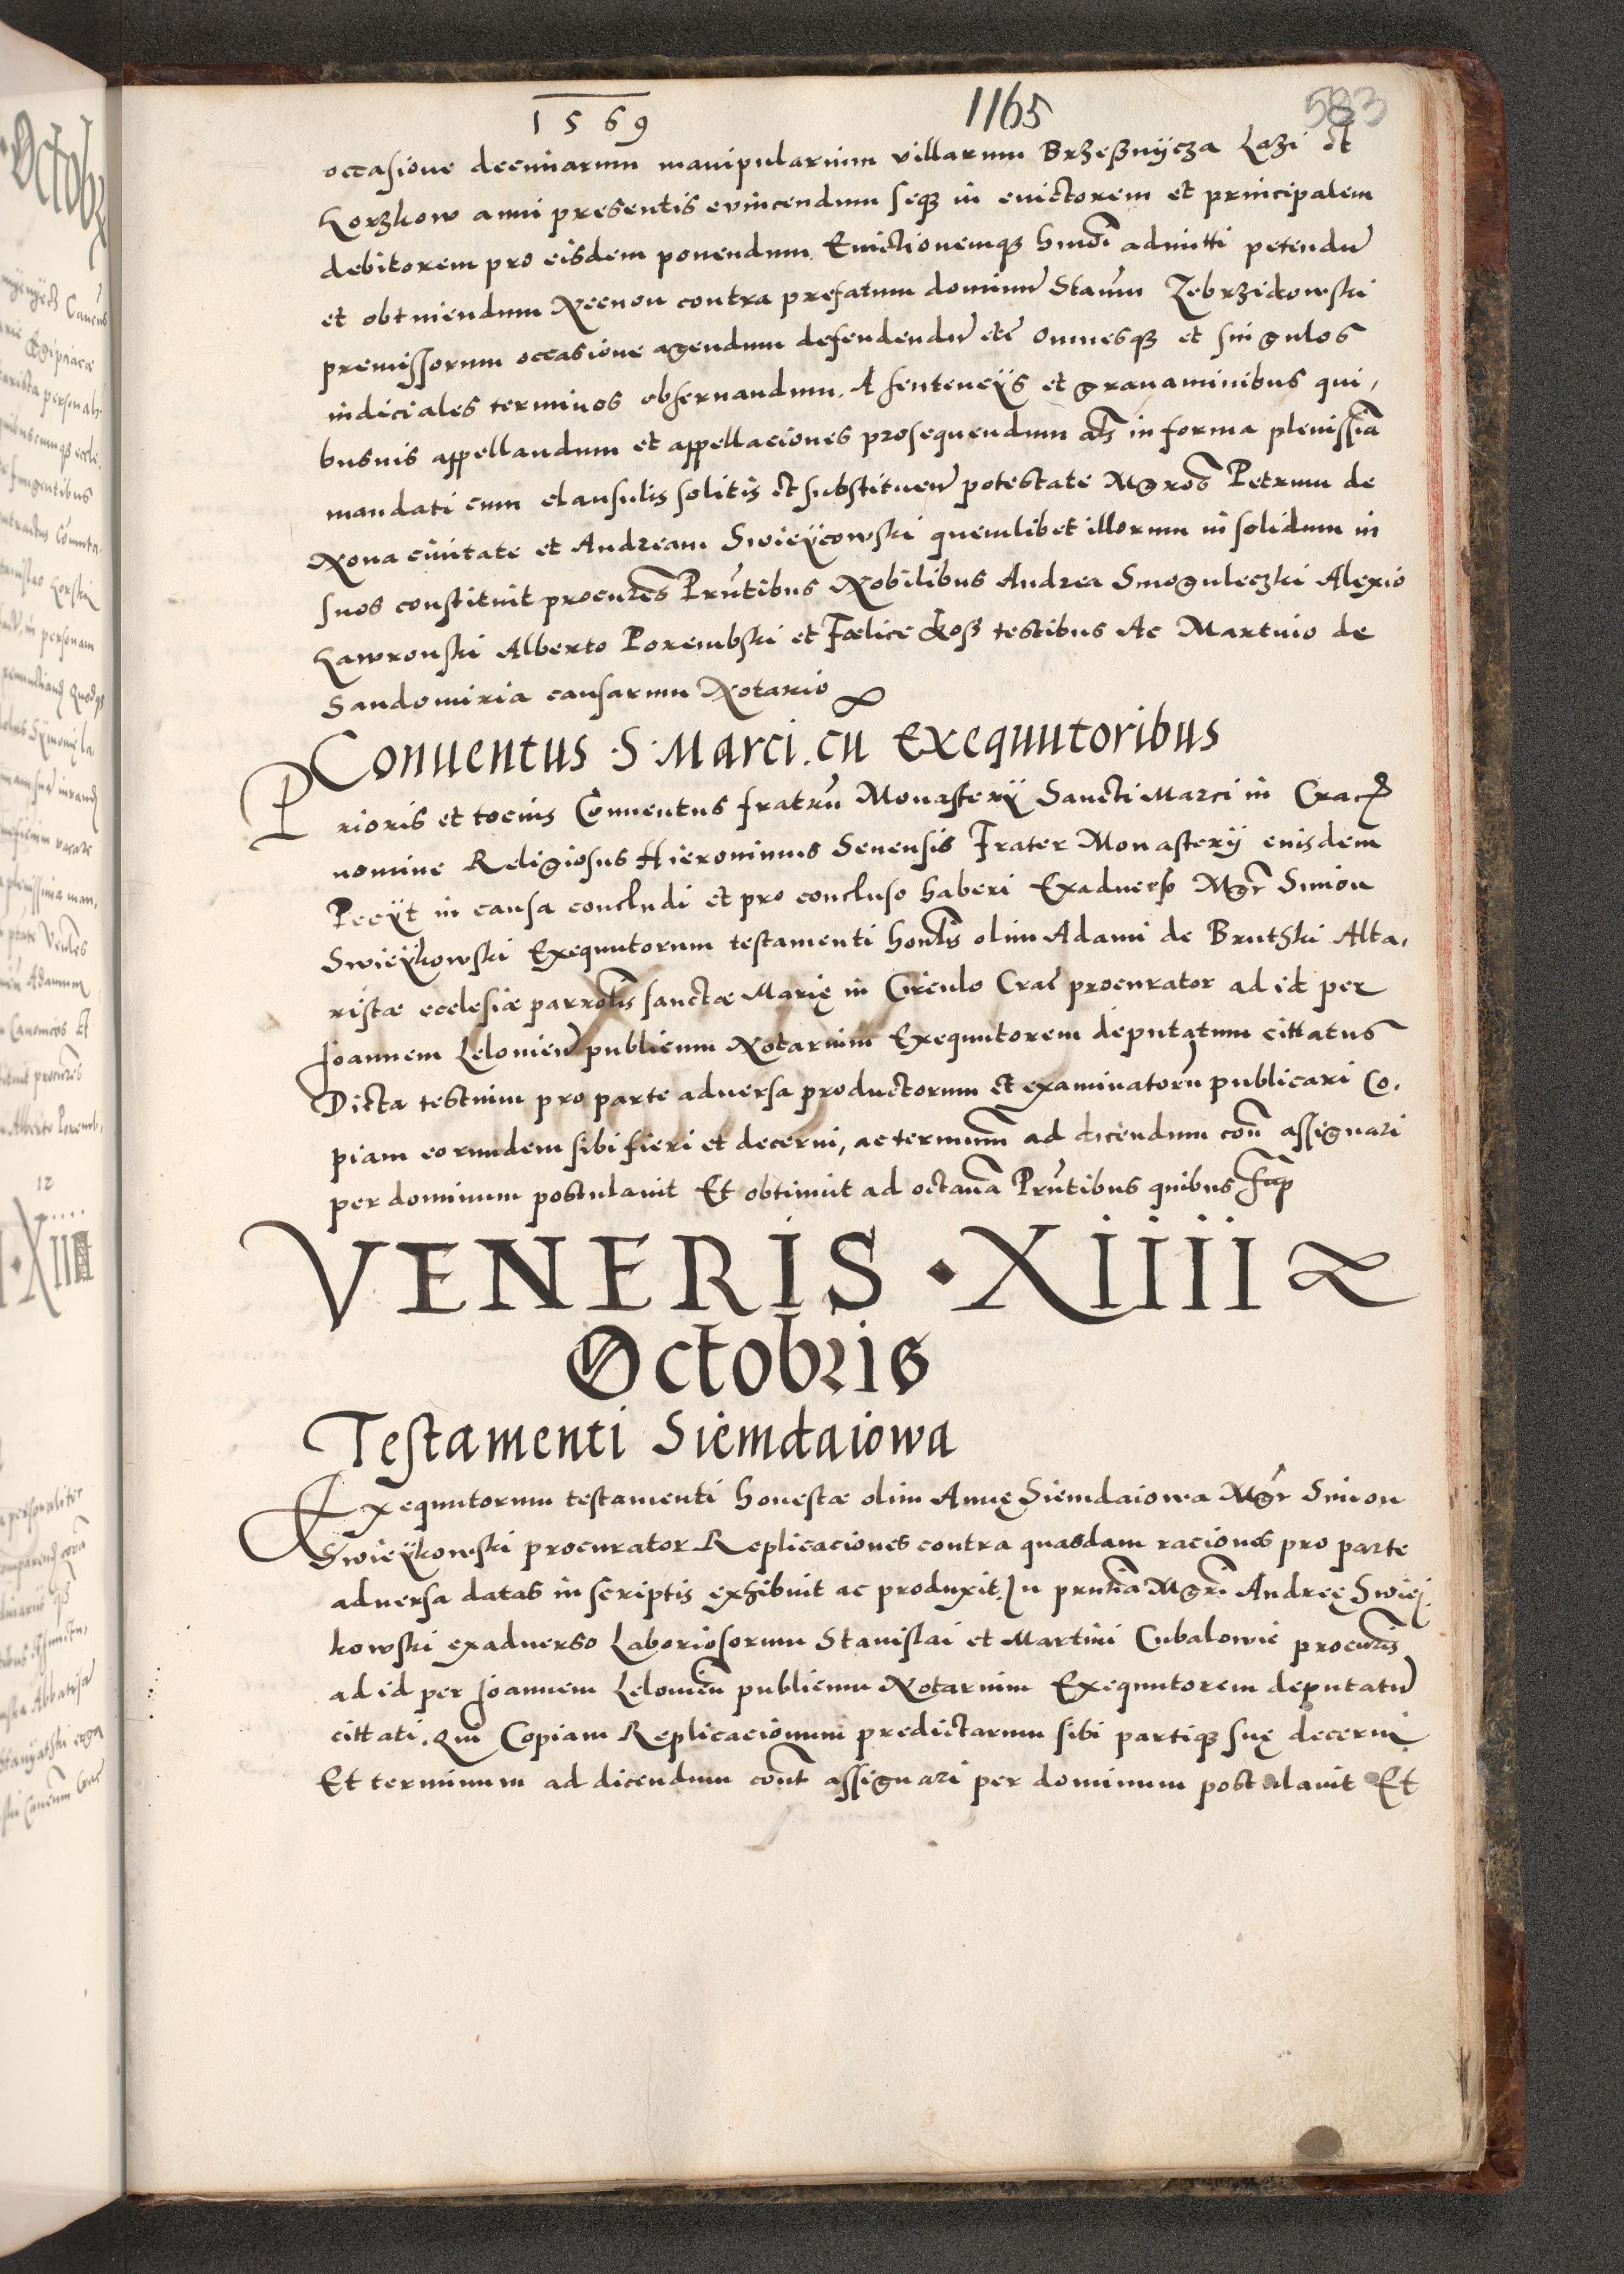 1569 1165 583
occasione decimarum manipularium villarum Brzeßnÿcza Lazi et
Korzkow anni presentis evincendum seqꝫ in evictorem et principalem
debitorem pro eisdem ponendum Evictionemqꝫ hmõi admitti petendũ
et obtinendum Necnon contra prefatum dominũ Stanm̃ Zebrzidowski
premissorum occasione agendum defendendũ etc̃ Omnesqꝫ et singulos
iudiciales terminos obseruandum. A sentencÿs et grauaminibus qui,
busuis appellandum et appellaciones prosequendum als̃ in forma plenissĩa
mandati cum clausulis solitis et substituen̄ potestate Mgros̃ Petrum de
Noua ciuitate et Andream Swieÿcowski quemlibet illorum in solidum in
suos constituit procurẽs Prñtibus Nobilibus Andrea Smoguleczki Alexio
Gawronski Alberto Porembski et Fœlice Koß testibus Ac Martino de
Sandomiria causarum Notario
Conuentus S. Marci. cũ Exequutoribus
Prioris et tocius Conuentus fratrũ Monasterÿ Sancti Marci in Crac̃
nomine Religiosus Hieronimus Senensis Frater Monasterÿ eiusdem
Pecÿt in causa concludi et pro concluso haberi Exaduerso Mgr̃ Simon
Swieÿkowski Exequutorum testamenti honls̃ olim Adami de Bruthski Alta,
ristæ ecclesiæ parrolis̃ sanctæ Marię in Circulo Crac̃ procurator ad id per
Joannem Lelouien̄ publicum Notarium Exequutorem deputatum cittatus
Dicta testium pro parte aduersa productorum et examinatorũ publicari Co,
piam eorundem sibi fieri et decerni, ac terminum ad dicendum con̄ assignari
per dominum postulauit Et obtinuit ad octaua Prñtibus quibus sup̃
VENERIS · XIIII
Octobris
Testamenti Siemdaiowa
Exequutorum testamenti honestæ olim Annę Siemdaiowa Mgr̃ Simon
Swieÿkowski procurator Replicaciones contra quasdam raciones pro parte
aduersa datas in scriptis exhibuit ac produxit. In prñtia Mgri Andreę Swieÿ,
kowski exaduerso Laboriosorum Stanislai et Martini Cubalowie procuris̃
ad id per Joannem Lelouien̄ publicum Notarium Exequutorem deputatũ
cittati. Qui Copiam Replicacionum predictarum sibi partiqꝫ suę decerni
Et terminum ad dicendum cont̃ assignari per dominum postulauit Et